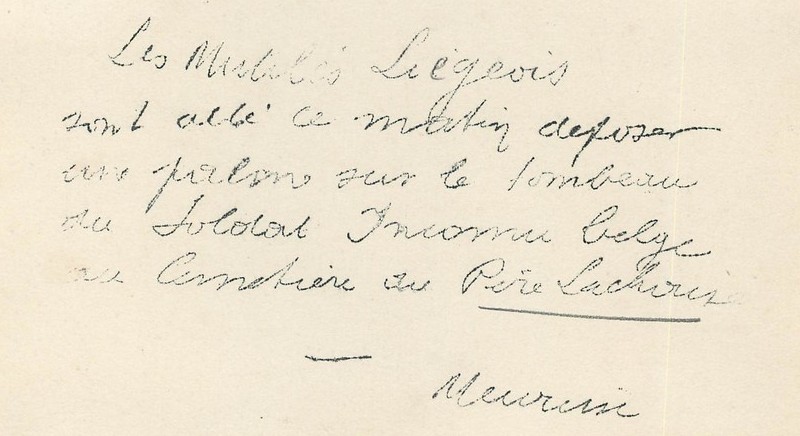 Les Mutilés Liégeois
sont allé ce matin deposer
une palme sur le tombeau
du Soldat Inconnu belge
au Cimetière du Père Lachaise
Meurisse